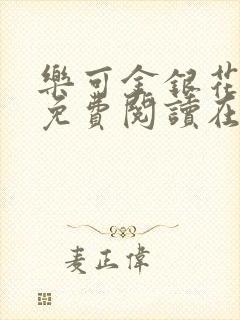 樂可金銀花
免費閱讀在
麦正偉